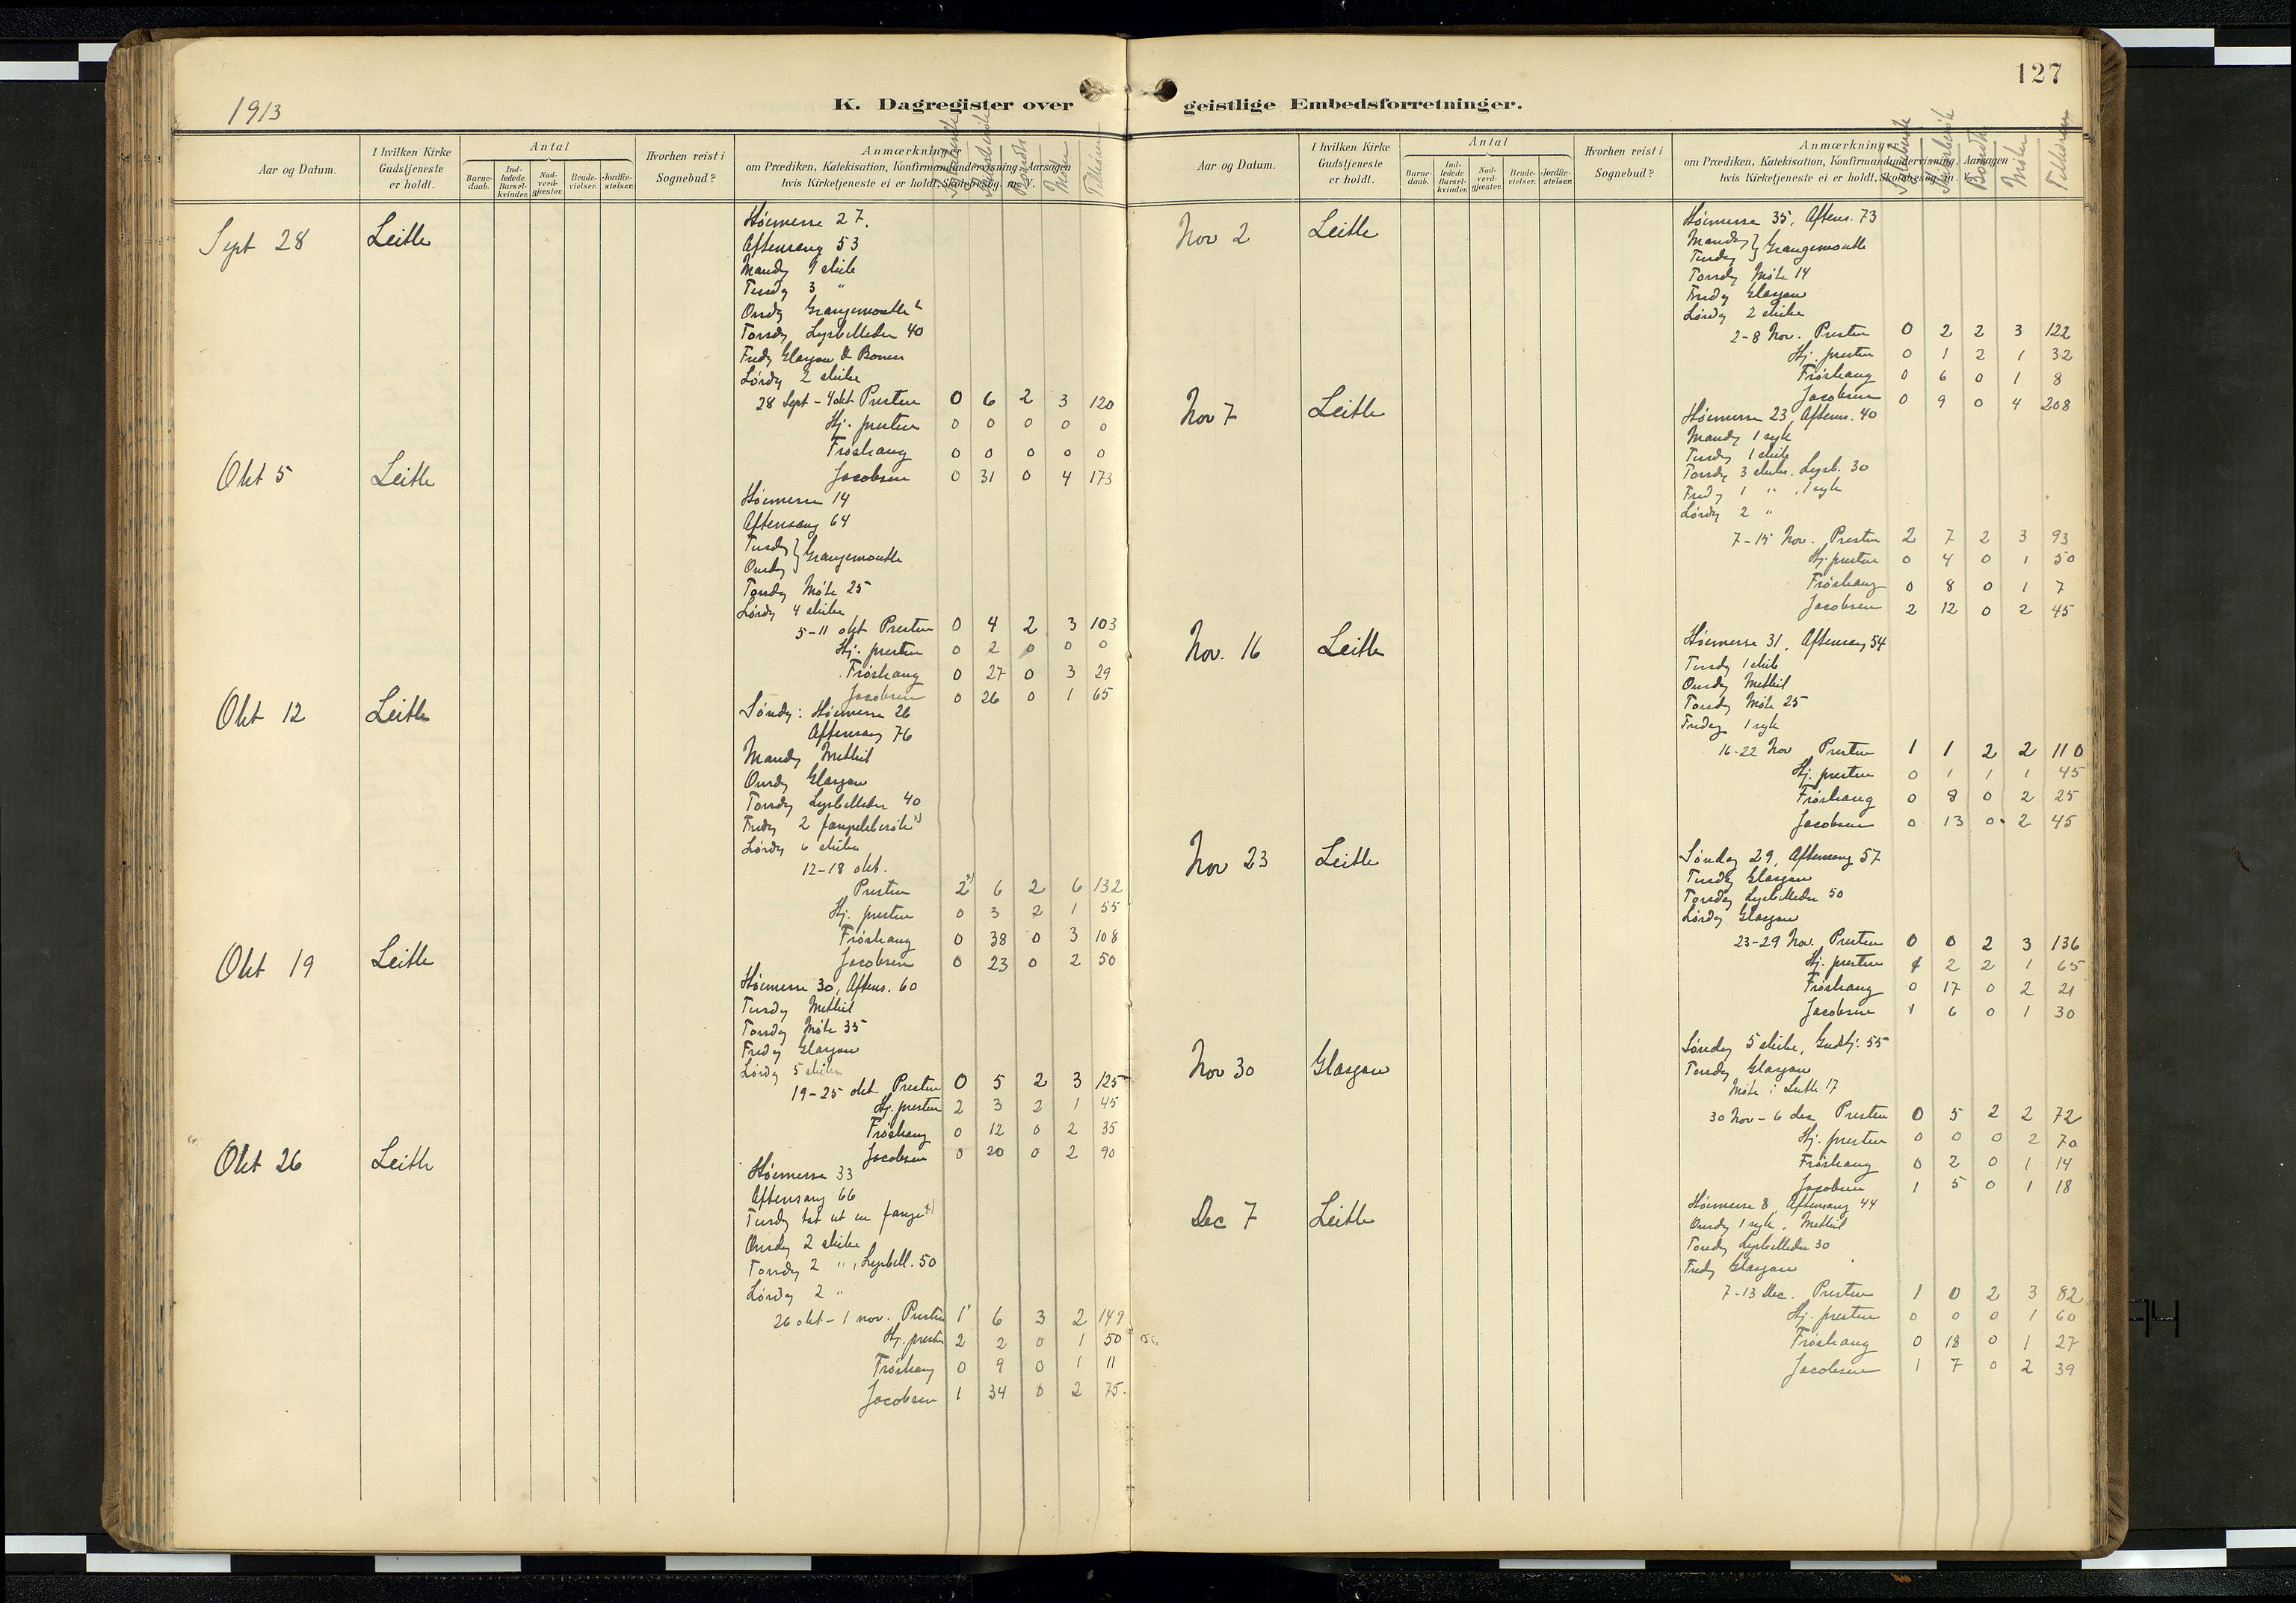 1913
K. Dagregister over
Aar og Datum.
I hvilken Kirke Gudstjeneste er holdt.
Antal
Barnedaab.
Indledede Barselkvinder.
Nadverdgjester.
Brudevielser.
Jordfæstelser.
Hvorhen reist i Sognebud?
Anmærkninger
om Prædiken, Katekisation, Konfirmandundervisning, Aarsagen
hvis Kirketjeneste ei er holdt, Skolebesøg m. V.
Sept 28 Leith
Høimesse 27.
Aftensang 53
Mandg 1 skibe
Tirsdg 3 "
Onsdg Grangemouth
Torsdg Lysbilleder 40
Fredg Glasgow & Boness
Lørdg 2 skibe
28 Sept - 4 okt Presten 0 6 2 3 120
Hj. presten 0 0 0 0 0
Frøshaug 0 0 0 0 0
Jacobsen 0 31 0 4 173
Okt 5 Leith
Høimesse 14
Aftensang 64
Tirsdg } Grangemouth
Onsdg
Torsdg Møte 25
Lørdg 4 skibe
5-11 okt Presten 0 4 2 3 103
Hj. presten 0 2 0 0 0
Frøshaug 0 27 0 3 29
Jacobsen 0 26 0 1 65
Okt 12 Leith
Søndg: Høimesse 26
Aftensang 76
Mandg Methil
Onsdg Glasgow
Torsdg Lysbilleder 40
Fredg 2 fængselsbesøk x)
Lørdg 6 skibe
12-18 okt.
Presten 2 x) 6 2 6 132
Hj. presten 0 3 2 1 55
Frøshaug 0 38 0 3 108
Jacobsen 0 23 0 2 50
Okt 19 Leith
Høimesse 30, Aftens. 60
Tirsdg Methil
Torsdg Møte 35
Fredg Glasgow
Lørdg 5 skibe
19-25 okt Presten 0 5 2 3 125
Hj. presten 2 3 2 1 45
Frøshaug 0 12 0 2 35
Jacobsen 0 20 0 2 90
Okt 26 Leith
Høimesse 33
Aftensang 66
Tirsdg tat ut en fange x)
Onsdg 2 skibe
Torsdg 2 ", Lysbill. 50
Lørdg 2 "
26 okt - 1 nov. Presten 1 x 6 3 2 149
Hj. presten 2 2 0 1 50
Frøshaug 0 9 0 1 11
Jacobsen 1 34 0 2 75.
127
geistlige Embedsforretninger.
Aar og Datum.
I hvilken Kirke Gudstjeneste er holdt.
Antal
Barnedaab.
Indledede Barselkvinder.
Nadverdgjester.
Brudevielser.
Jordfæstelser.
Hvorhen reist i Sognebud?
Anmærkninger
om Prædiken, Katekisation, Konfirmandundervisning, Aarsagen
hvis Kirketjeneste ei er holdt, Skolebesøg m. V.
Nov 2 Leith
Høimesse 35, Aftens. 73
Mandg } Grangemouth
Tirsdg
Torsdg Møte 14
Fredg Glasgow
Lørdg 2 skibe
2-8 Nov. Presten 0 2 2 3 122
Hj. presten 0 1 2 1 32
Frøshaug 0 6 0 1 8
Jacobsen 0 9 0 4 208
Nov 7 Leith
Høimesse 23, Aftens. 40
Mandg 1 syk
Tirsdg 1 skib
Torsdg 3 skibe. Lysb. 30
Fredg 1 ", 1 syk
Lørdg 2 "
7-15 Nov. Presten 2 7 2 3 93
Hj. presten 0 4 0 1 50
Frøshaug 0 8 0 1 7
Jacobsen 2 12 0 2 45
Nov. 16 Leith
Høimesse 31, Aftensang 54
Tirsdg 1 skib
Onsdg Methil
Torsdg Møte 25
Fredag 1 syk
16-22 Nov Presten 1 1 2 2 110
Hj. presten 0 1 1 1 45
Frøshaug 0 8 0 2 25
Jacobsen 0 13 0 2 45
Nov 23 Leith
Søndag 29, Aftensang 57
Tirsdg Glasgow
Torsdag Lysbilleder 50
Lørdg Glasgow
23-29 Nov. Presten 0 0 2 3 136
Hj. presten 2 2 1 65
Frøshaug 0 17 0 2 21
Jacobsen 1 6 0 1 30
Nov 30 Glasgow
Søndag 5 skibe, Gudstj. 55
Torsdg Glasgow
Møte i Leith 17
30 Nov - 6 dec Presten 0 5 2 2 72
Hj. presten 0 0 0 2 70
Frøshaug 0 2 0 1 14
Jacobsen 1 5 0 1 18
Dec 7 Leith
Høimesse 8, Aftensang 44
Onsdg 1 syk, Methil
Torsdg Lysbilleder 30
Fredg Glasgow
7-13 Dec. Presten 1 0 2 3 82
Hj. presten 0 0 0 1 60
Frøshaug 0 18 0 1 27
Jacobsen 1 7 0 2 39